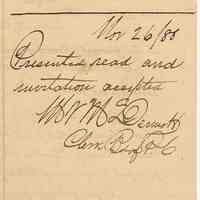 Nov 26/88
Presented read and
invitation accepted
McDermott
Clerk